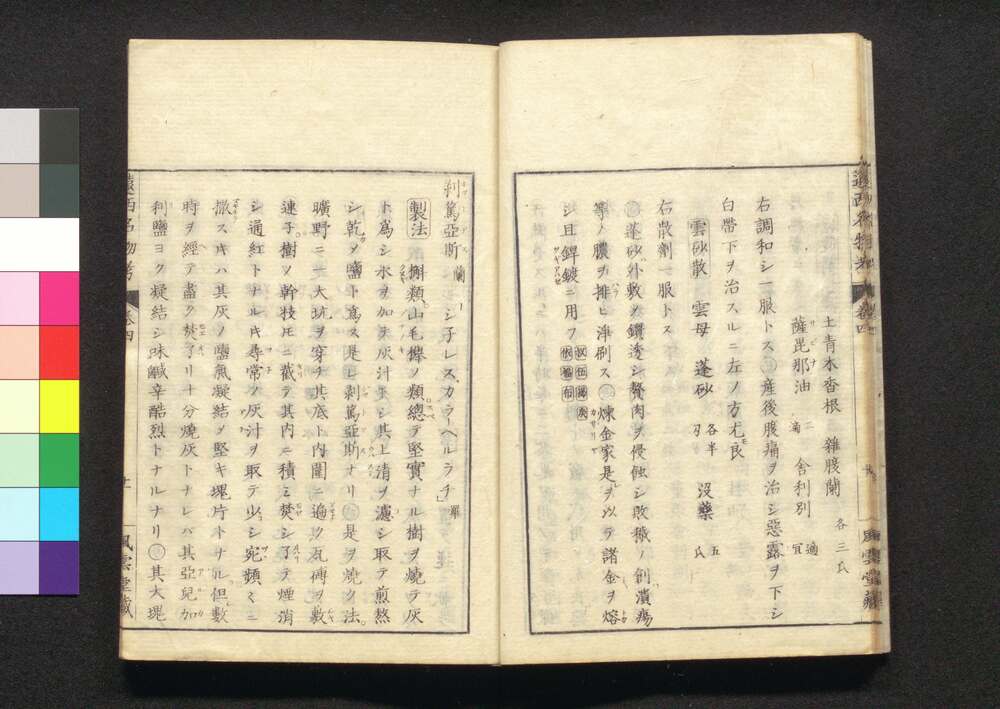 土青木香根　雜腹蘭　各三氏
薩毘那油　二滴　舍利別　適宜
右調和シ一服トス　産後腹痛ヲ治シ惡露ヲ下シ
白帶下ヲ治スルニ左ノ方尤良
雲砂散　雲母　蓬砂　各半刃　沒藥　五氏
右散劑一服トス
蓬砂外敷ノ鑽透シ贅肉ヲ侵蝕シ敗穢ノ創潰瘍
等ノ膿ヲ排ヒ淨刷ス　煉金家是ヲ以テ諸金ヲ熔
シ且銲鍍ニ用フ
剥篤亞斯　蘭　シ子レスカラーヘルラチ　羅
製法　槲類山毛欅ノ類總テ堅實ナル樹ヲ燒テ灰
ト爲シ水ヲ加テ灰汁ヲシ其上清ヲ濾シ取テ煎熬
シ乾シメ鹽ト爲ス是レ剥篤亞斯ナリ　是ヲ燒ク法
曠野ニ一大坑ヲ穿チ其底ト内圍ニ遍ク瓦磚ヲ敷
連子樹ノ幹枝圧ニ截テ其内ニ積ミ焚シ了テ煙消
シ通紅トナル片尋常ノ灰汁ヲ取テ少シ宛頻ミニ
撒スキハ其灰ノ鹽氣凝結シ堅キ塊片トナル但數
時ヲ經テ盡ク焚了リ十分燒灰トナレバ其亞兒加
利鹽ヨク凝結シ味鹹辛酷烈トナルナリ　其大塊
遠西名物考　卷四　十一　風雲堂藏